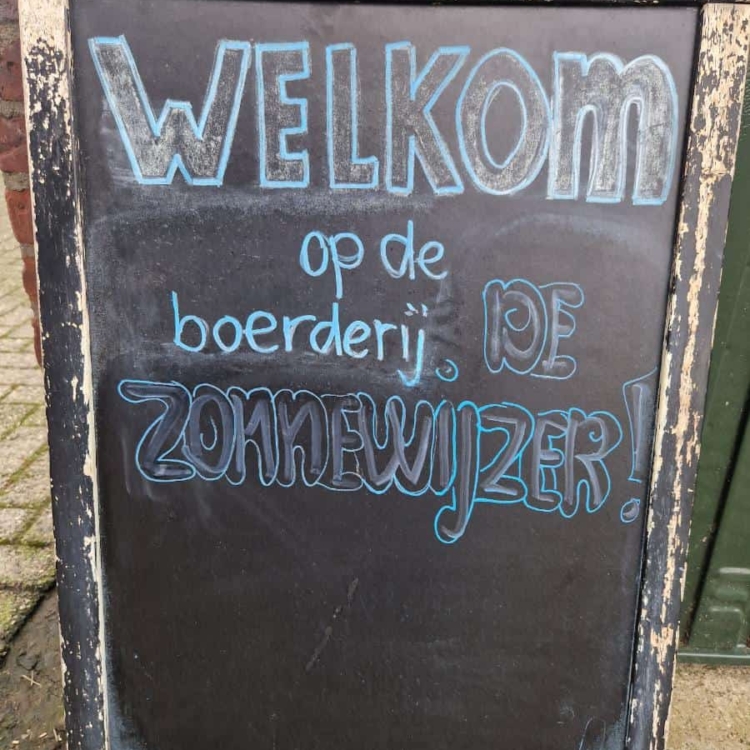 WELKOM
op de
boerderij. DE
ZONNEWIJZER!